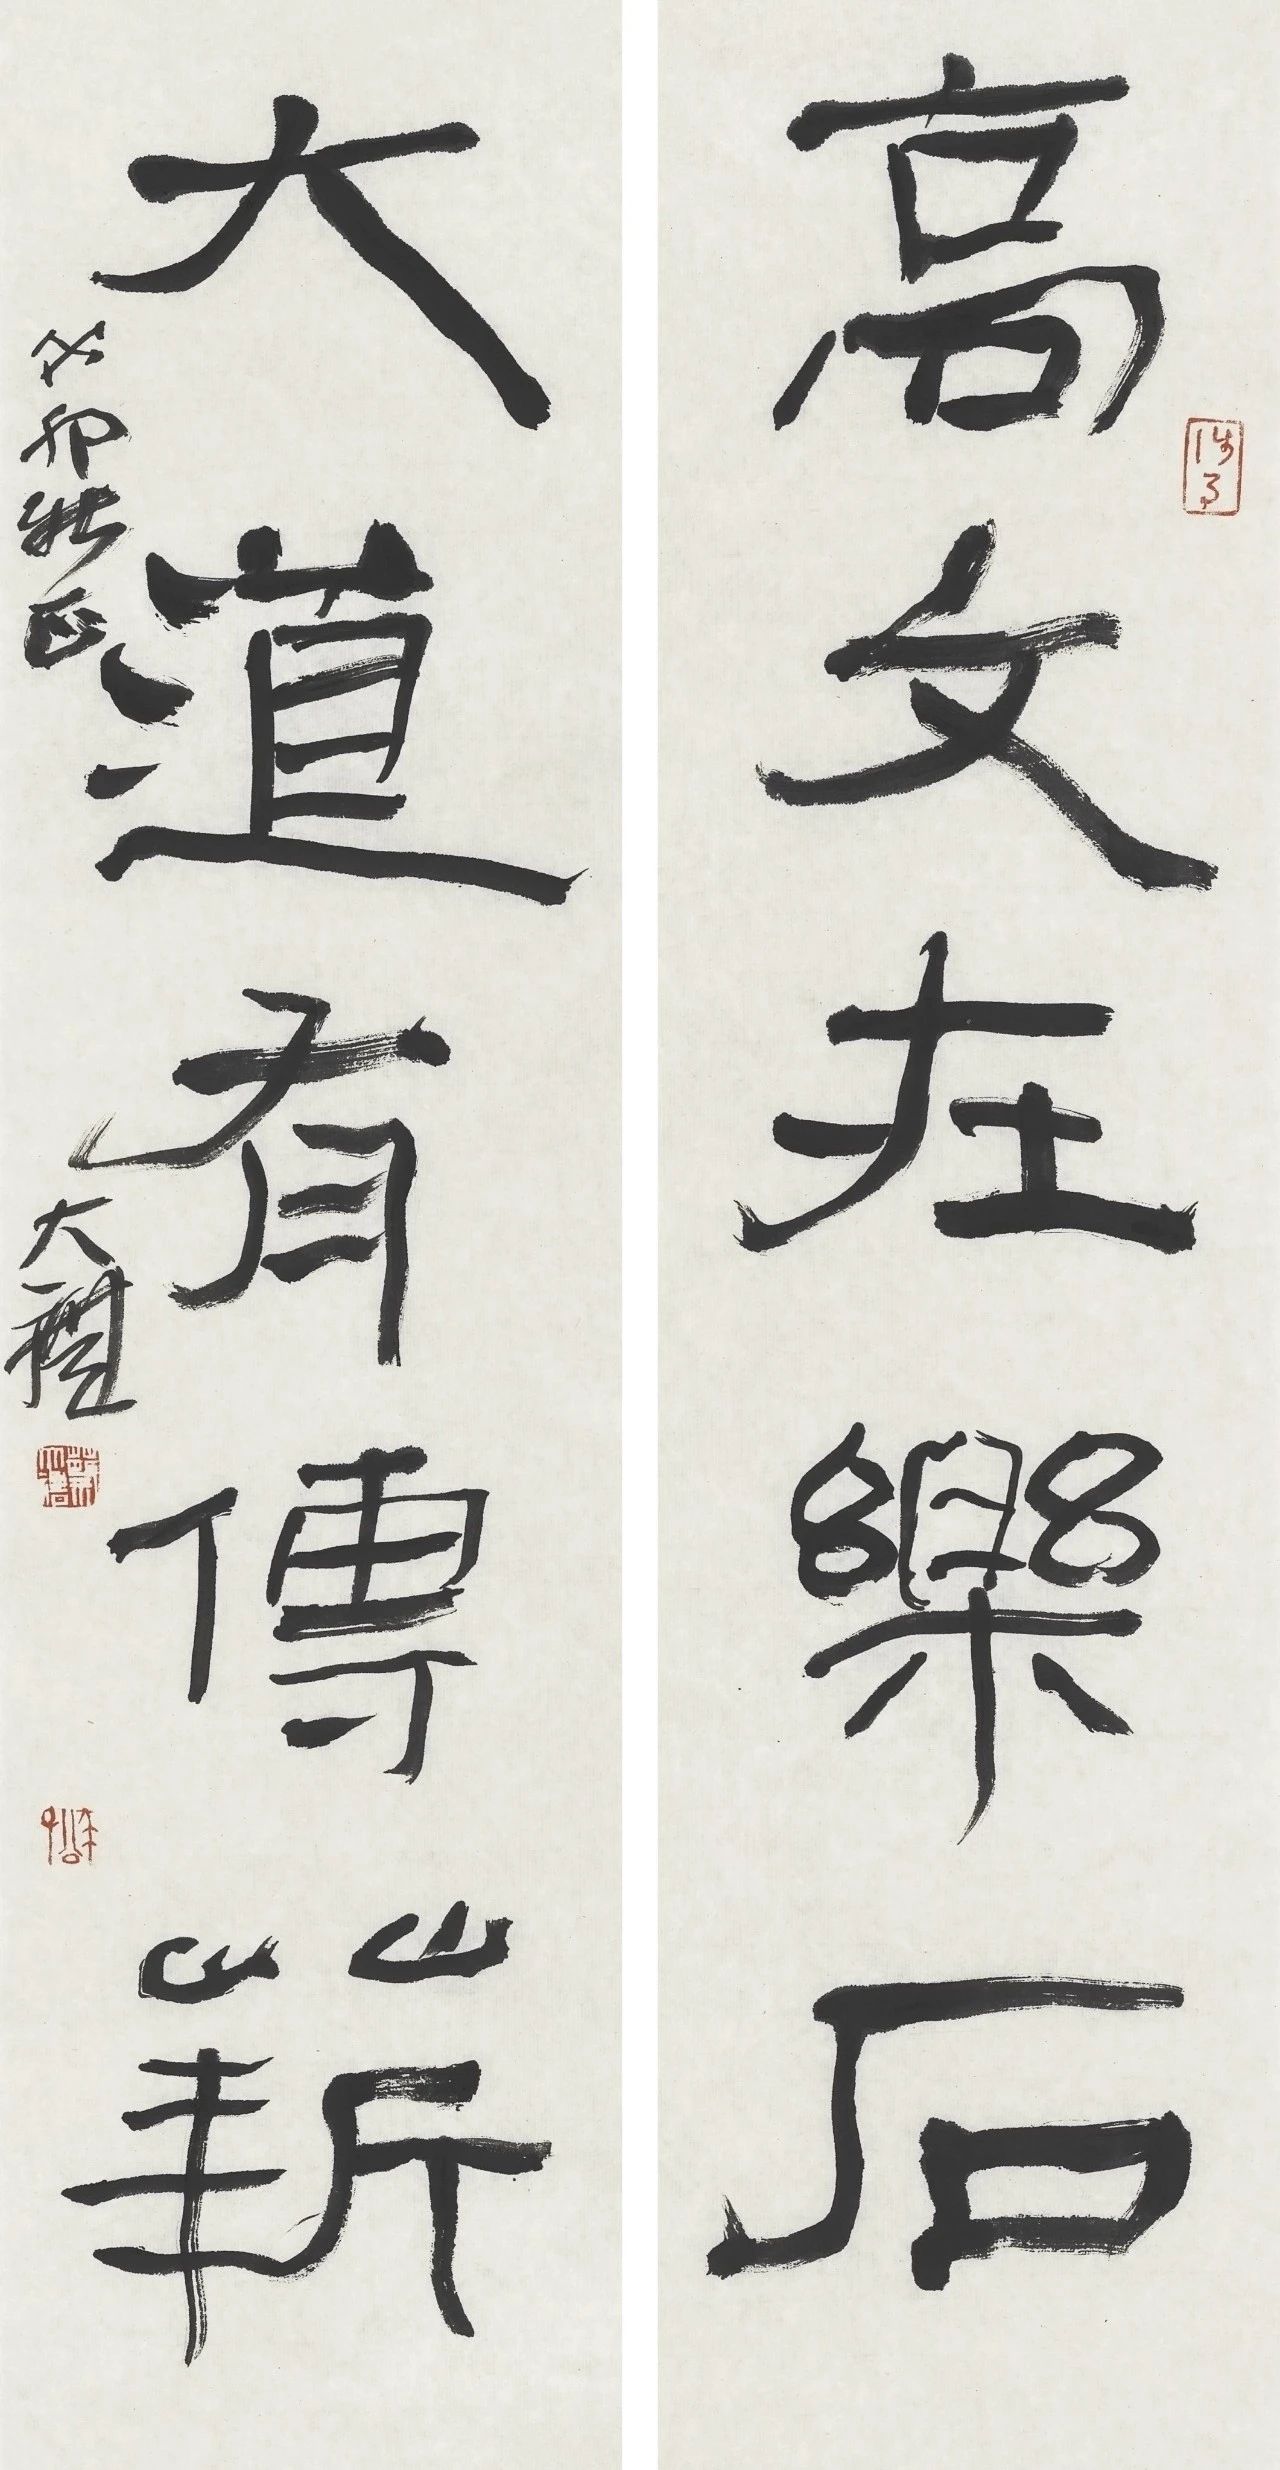 高文在樂石
大道有傳薪
癸卯
大禮